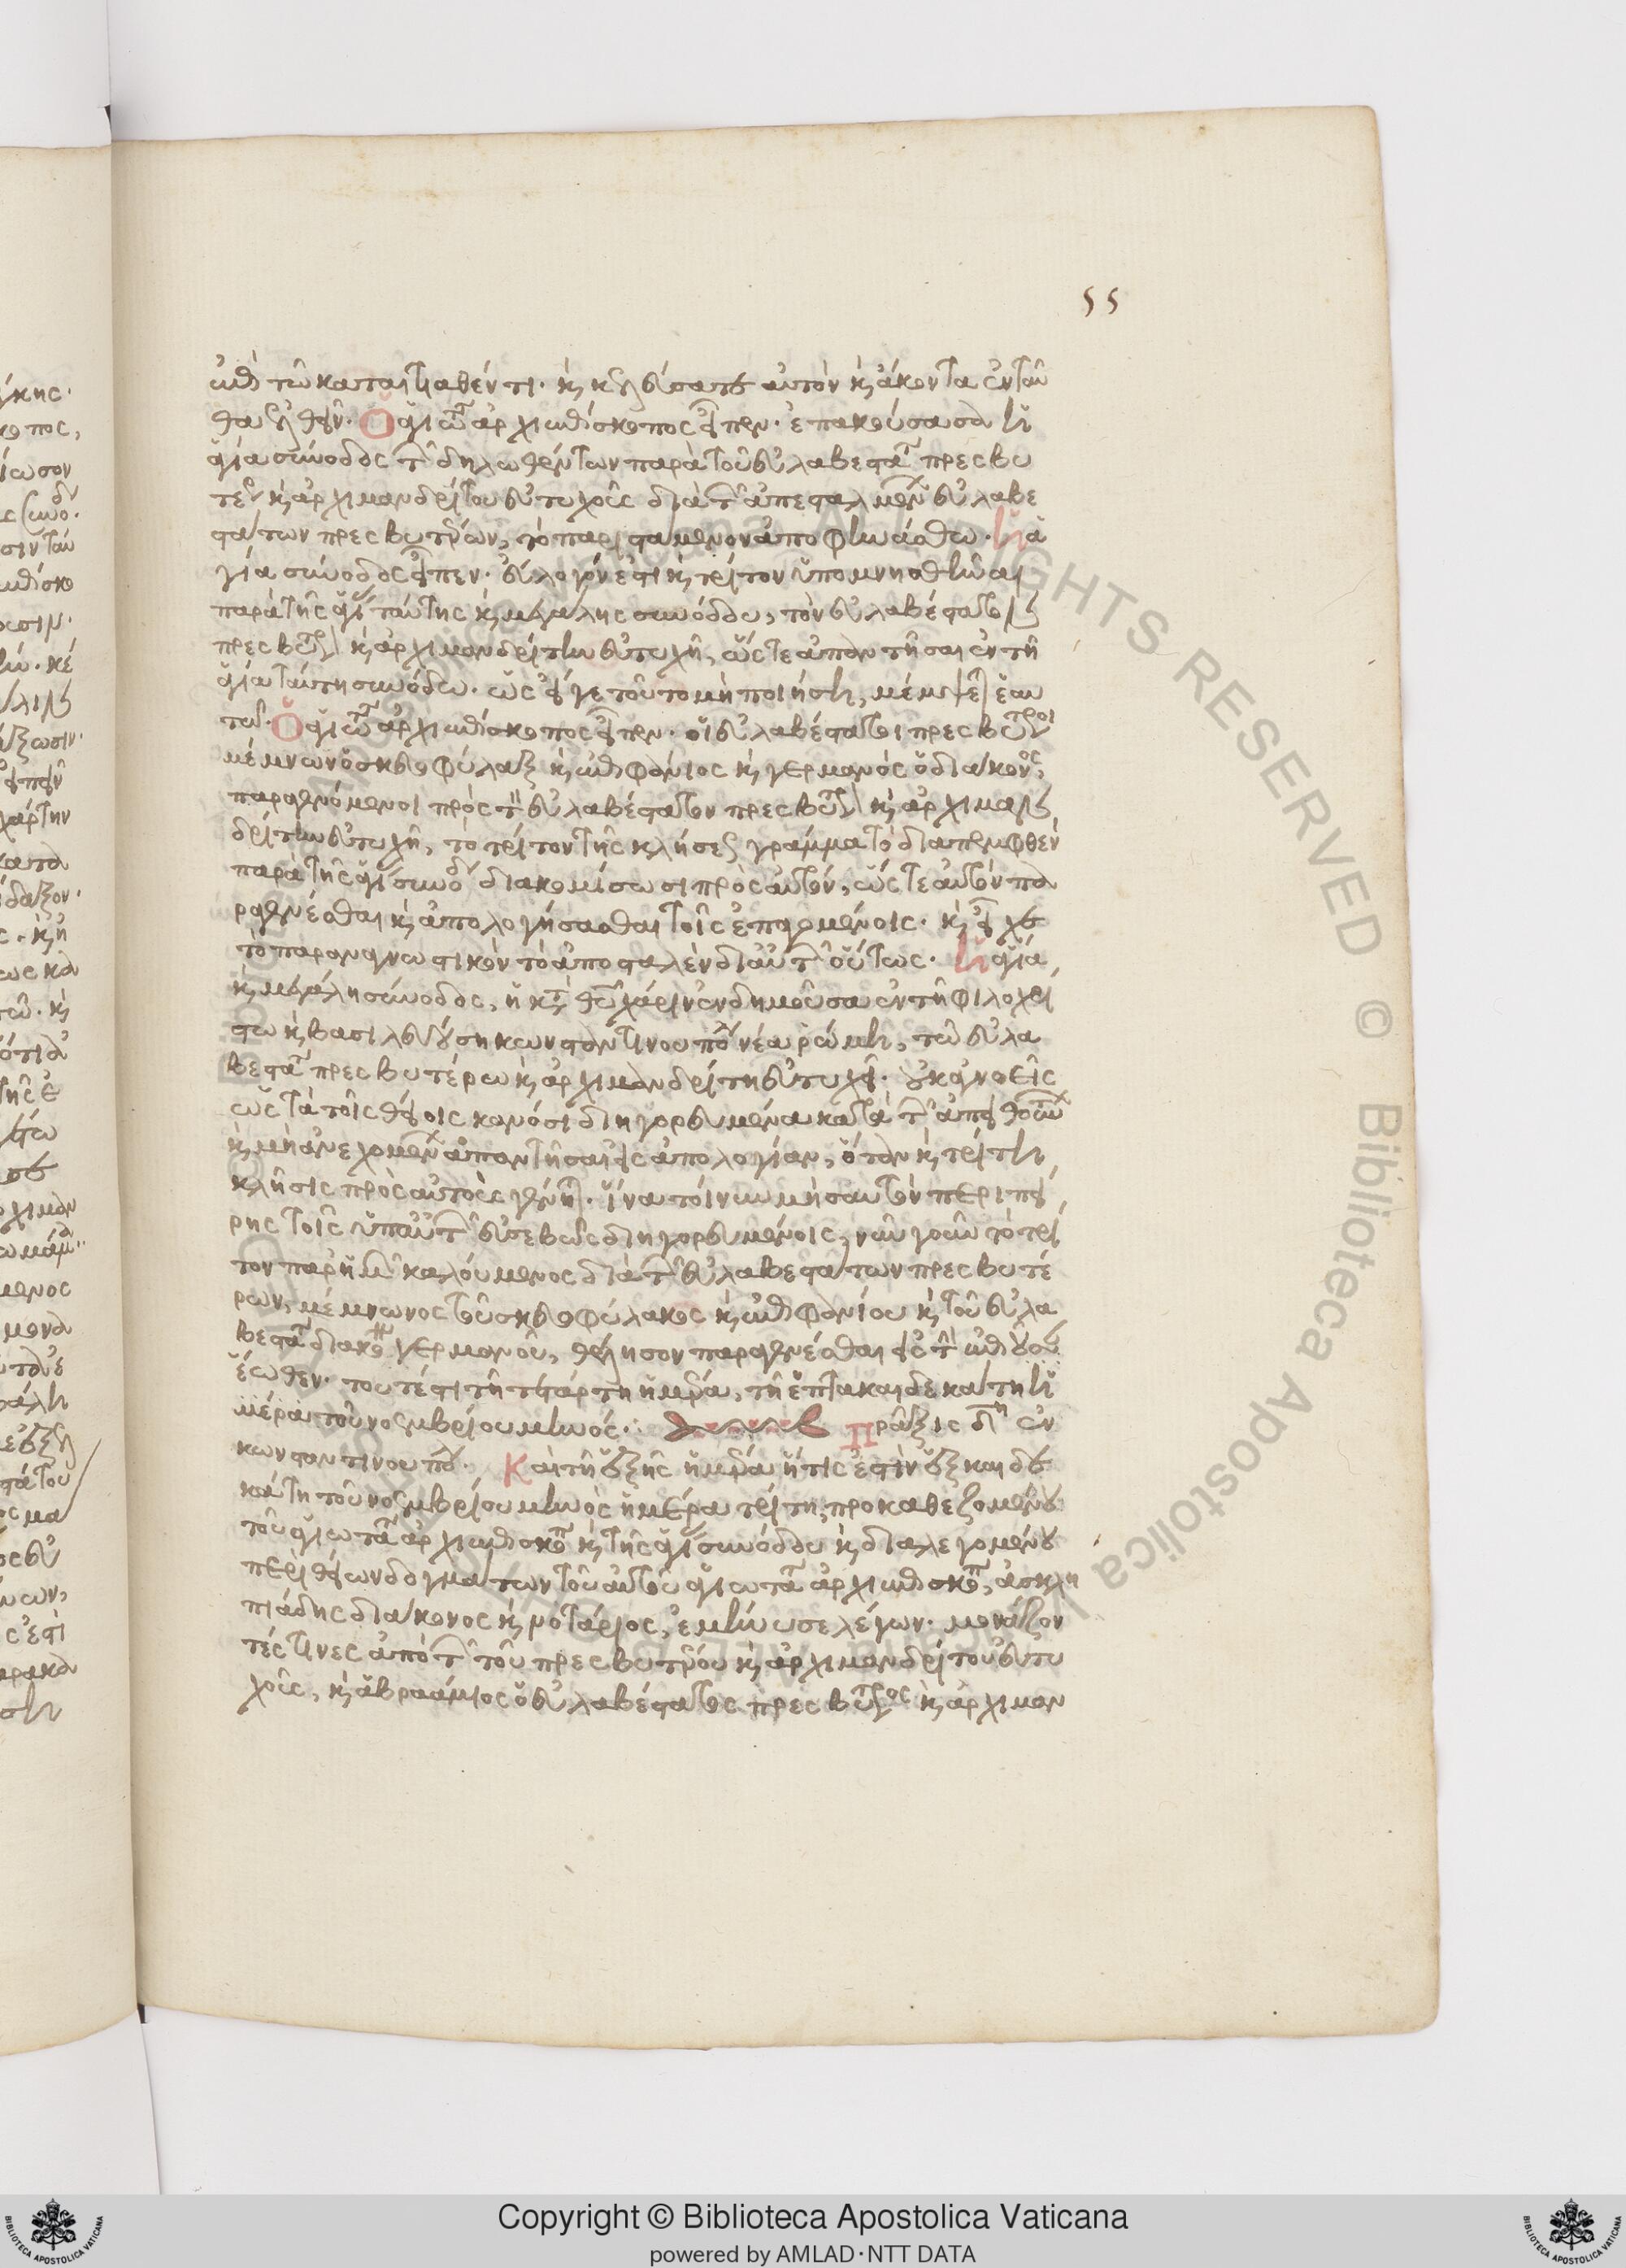 55
ἐπὶ τῷ καταιτιαθέντι· καὶ κελεύσατε αὐτὸν καὶ ἄκοντα ἐνταῦ
θα ἐλθεῖν· Ὁ ἁγιώτατος ἀρχιεπίσκοπος εἶπεν· ἐπακούσασα ἡ
ἁγία σύνοδος τῶν δηλωθέντων παρὰ τοῦ εὐλαβεστάτου πρεσβυ
τέρου καὶ ἀρχιμανδρίτου εὐτυχοῦς διὰ τῶν ἀπεσταλμένων εὐλαβε
στάτων πρεσβυτέρων, τὸ παριστάμενον ἀποφηνάσθω· Ἡ ἁ
γία σύνοδος εἶπεν· εὔλογόν ἐστι καὶ τρίτον ὑπομνησθῆναι
παρὰ τῆς ἁγίας ταύτης καὶ μεγάλης συνόδου, τὸν εὐλαβέστατον
πρεσβύτερον καὶ ἀρχιμανδρίτην εὐτυχῆ, ὥστε ἀπαντῆσαι ἐν τῇ
ἁγίᾳ ταύτῃ συνόδῳ· ὡς εἴγε τοῦτο μὴ ποιήσῃ, μέμψεται ἑαυ
τῷ· Ὁ ἁγιώτατος ἀρχιεπίσκοπος εἶπεν· οἱ εὐλαβέστατοι πρεσβύτεροι
μέμνων ὁ σκευοφύλαξ καὶ ἐπιφάνιος καὶ γερμανός ὁ διάκονος,
παραγενόμενοι πρὸς τὸν εὐλαβέστατον πρεσβύτερον καὶ ἀρχιμαν
δρίτην εὐτυχῆ, τὸ τρίτον τῆς κλήσεως γράμμα τὸ διαπεμφθὲν
παρὰ τῆς ἁγίας συνόδου διακομίσωσι πρὸς αὐτόν, ὥστε αὐτόν πα
ραγενέσθαι καὶ ἀπολογήσασθαι τοῖς ἐπαγομένοις· καὶ εἶχε
τὸ παραναγνωστικὸν τὸ ἀποσταλὲν δι' αὐτῶν οὕτως· Ἡ ἁγία
καὶ μεγάλη σύνοδος, ἡ κατὰ θεοῦ χάριν ἐνδημοῦσα ἐν τῇ φιλοχρί
στῳ καὶ βασιλευούσῃ κωνσταντίνου πόλει νέᾳ ῥώμῃ, τῷ εὐλα
βεστάτῳ πρεσβυτέρῳ καὶ ἀρχιμανδρίτῃ εὐτυχεῖ· οὐκ ἀγνοεῖς
ὡς τὰ τοῖς θείοις κανόσι διηγορευμένα κατὰ τῶν ἀπειθούντων
καὶ μὴ ἀνεχομένων ἀπαντῆσαι εἰς ἀπολογίαν, ὅταν καὶ τρίτη
κλῆσις πρὸς αὐτοὺς γένηται· ἵνα τοίνυν μὴ σαυτὸν περιπεί
ρῃς τοῖς ὑπ' αὐτῶν εὐσεβῶς διηγορευμένοις, νῦν γοῦν τὸ τρί
τον παρ' ἡμῶν καλούμενος διὰ τῶν εὐλαβεστάτων πρεσβυτέ
ρων, μέμνωνος τοῦ σκευοφύλακος καὶ ἐπιφανίου καὶ τοῦ εὐλα
βεστάτου διακόνου γερμανοῦ, θέλησον παραγενέσθαι εἰς τὴν ἐπιοῦσαν
ἕωθεν· τουτέστι τῇ τετάρτῃ ἡμέρᾳ, τῇ ἑπτακαιδεκάτῃ ἡ
μέρᾳ τοῦ νοεμβρίου μηνός· Πρᾶξις ἐν
κωνσταντίνου πόλει· Καὶ τῇ ἑξῆς ἡμέρᾳ ἥτις ἐστὶν ἑξκαιδε
κάτη τοῦ νοεμβρίου μηνὸς ἡμέρα τρίτη, προκαθεζομένου
τοῦ ἁγιωτάτου ἀρχιεπισκόπου καὶ τῆς ἁγίας συνόδου καὶ διαλεγομένου
περὶ θείων δογμάτων τοῦ αὐτοῦ ἁγιωτάτου ἀρχιεπισκόπου, ἀσκλη
πιάδης διάκονος καὶ νοτάριος, ἐμήνυσε λέγων· μονάζον
τές τινες ἀπὸ τῶν τοῦ πρεσβυτέρου καὶ ἀρχιμανδρίτου εὐτυ
χοῦς, καὶ ἀβραάμιος ὁ εὐλαβέστατος πρεσβύτερος καὶ ἀρχιμαν
Copyright © Biblioteca Apostolica Vaticana
powered by AMLAD·NTT DATA